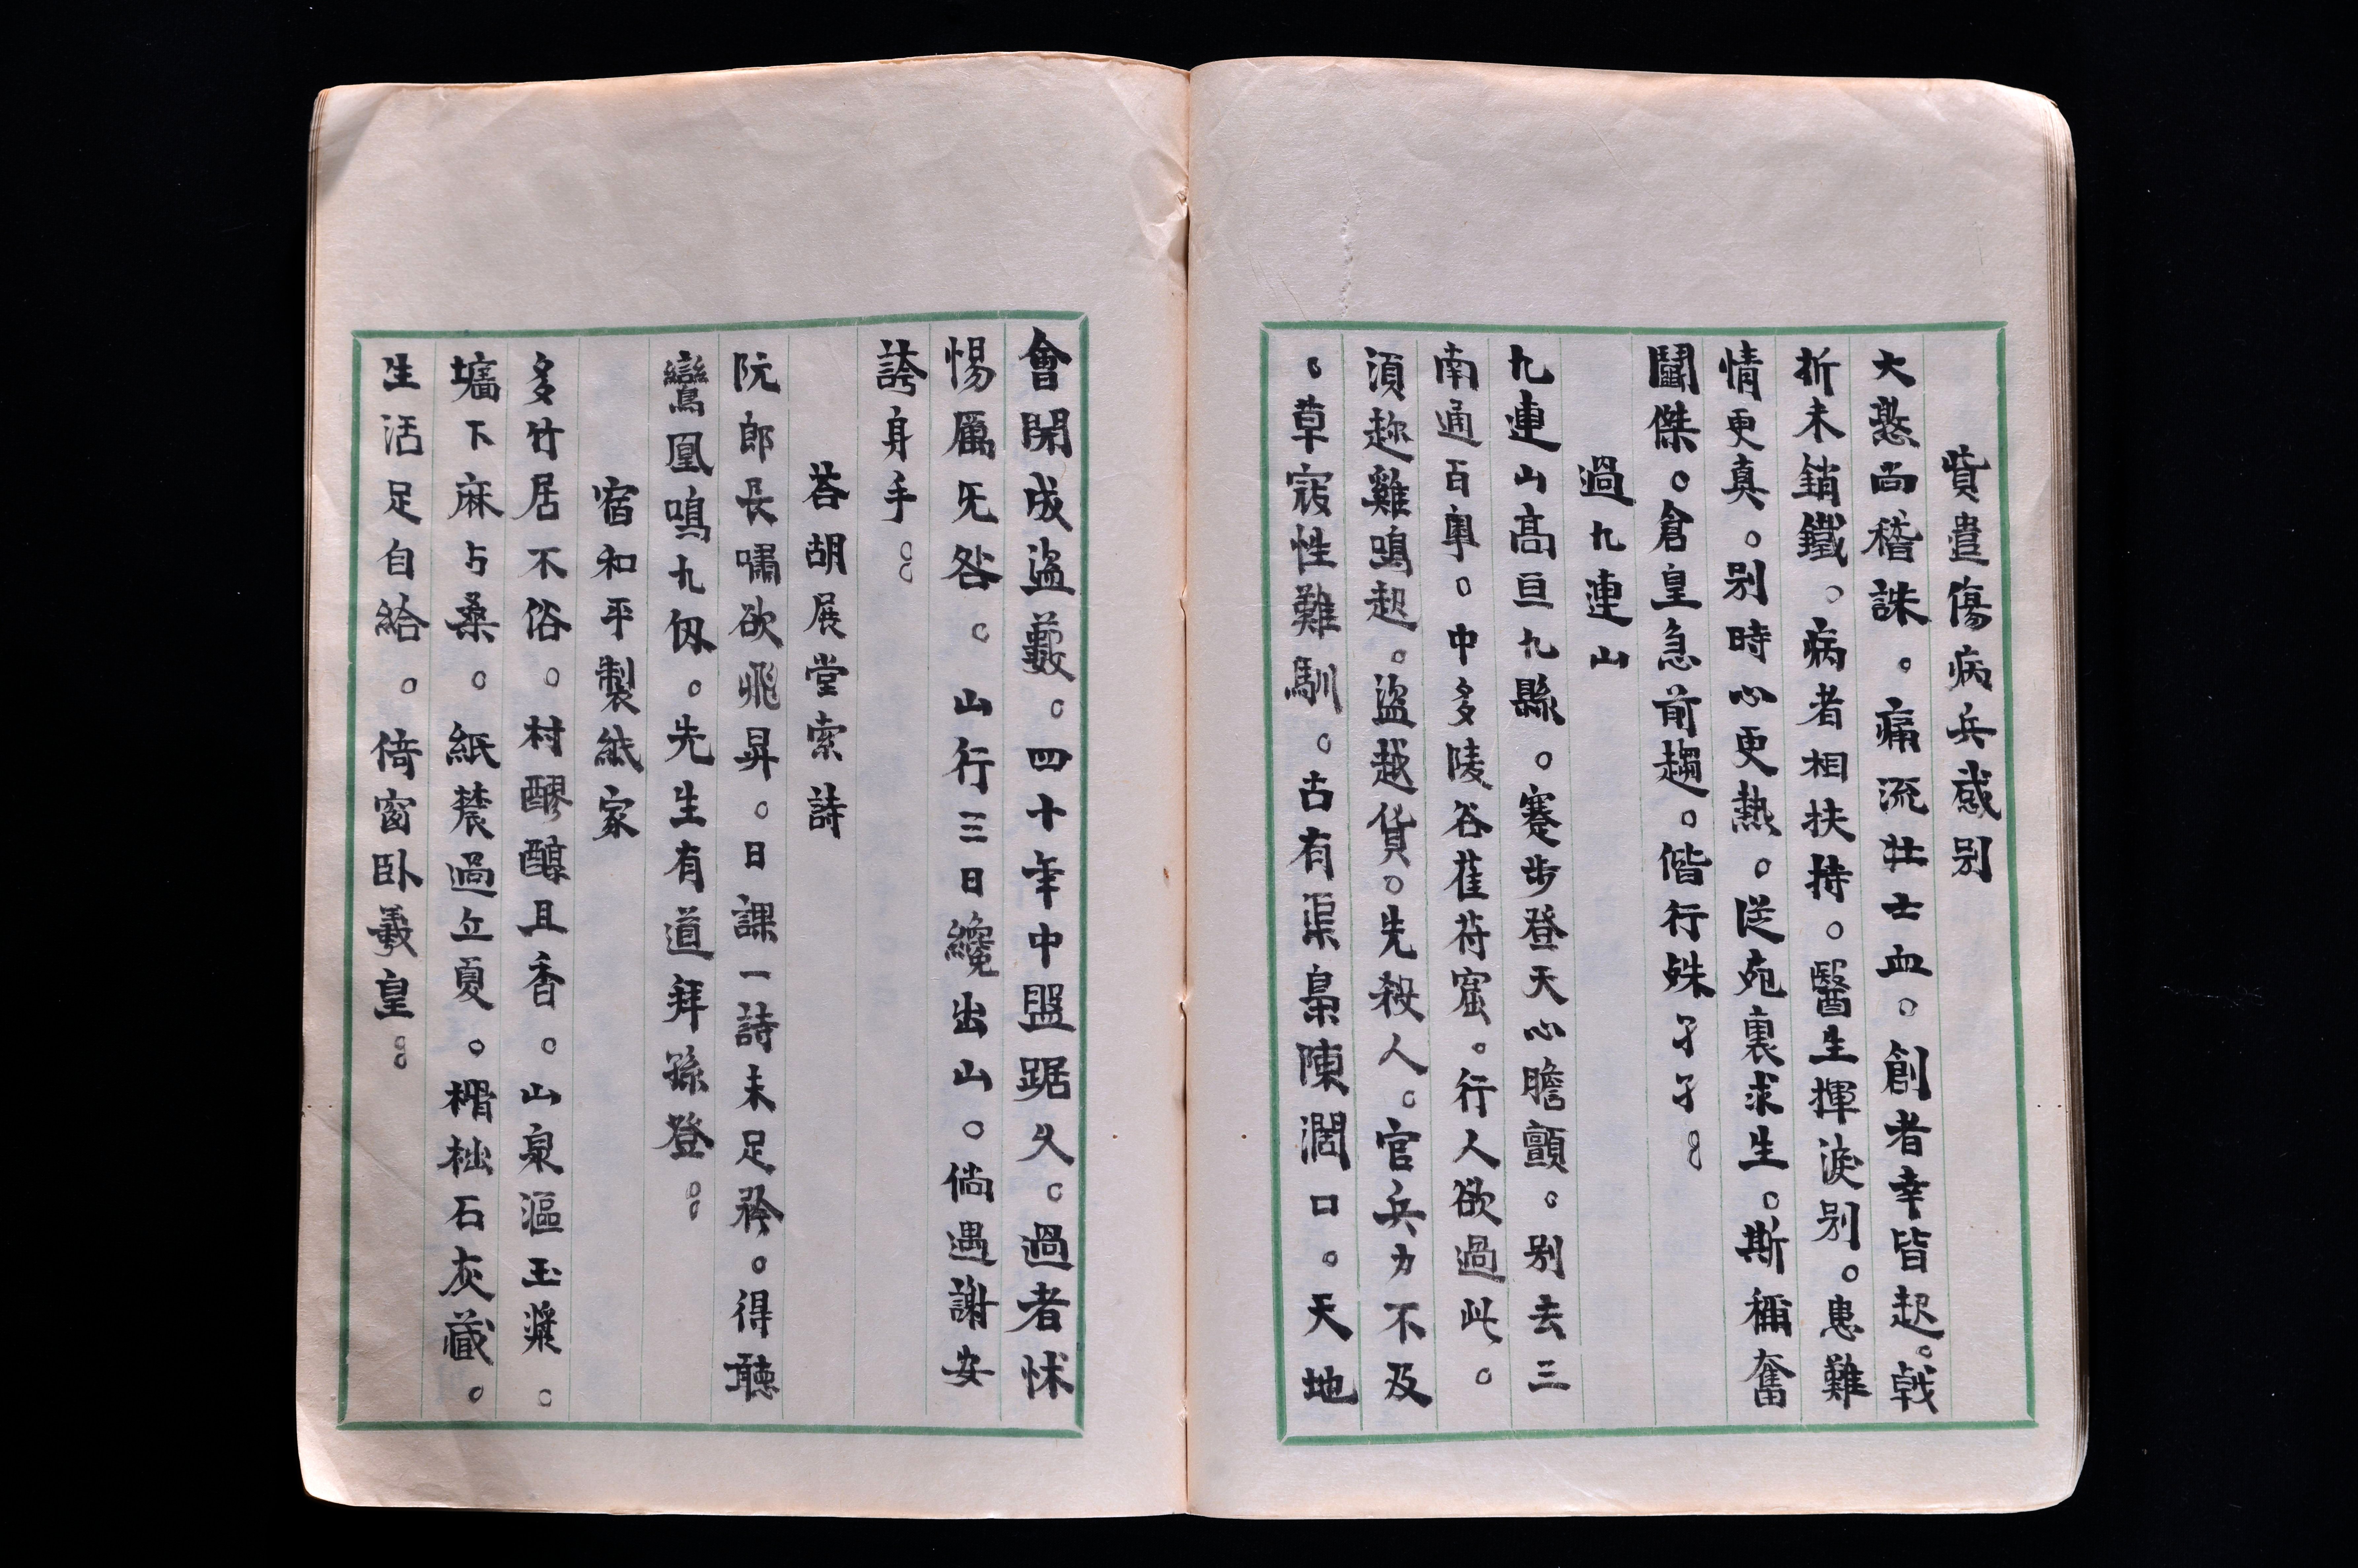 貲遣傷病兵感别
大憝尚稽誅。痛流壯士血。創者幸皆起。戟
折未銷鐵。病者相扶持。醫生揮淚别。患難
情更真。别時心更熱。從死裏求生。斯稱奮
鬪傑。倉皇急前趨。偕行殊孑孑。
過九連山
九連山高亘九縣。蹇步登天心膽顫。别去三
南通百粤。中多陵谷萑苻窟。行人欲過此。
須趂雞鳴起。盜越貨。先殺人。官兵力不及
。草寇性難馴。古有渠梟陳濶口。天地
會開成盜藪。四十年中盤踞久。過者怵
惕厲旡咎。山行三日纔出山。倘遇謝安
誇身手。
荅胡展堂索詩
阮郎長嘯欲飛昇。日課一詩未足矜。得聽
鸞凰鳴九仭。先生有道拜孫登。
宿和平製紙家
多竹居不俗。村醪醇且香。山泉漚玉漿。
墻下麻与桑。紙辳過立夏。榾柮石灰藏。
生活足自給。倚窗卧羲皇。